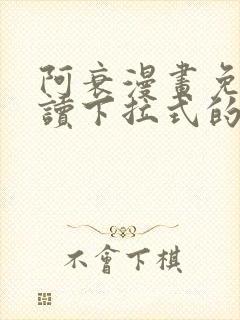 阿衰漫畫免
讀下拉式的
不會下棋